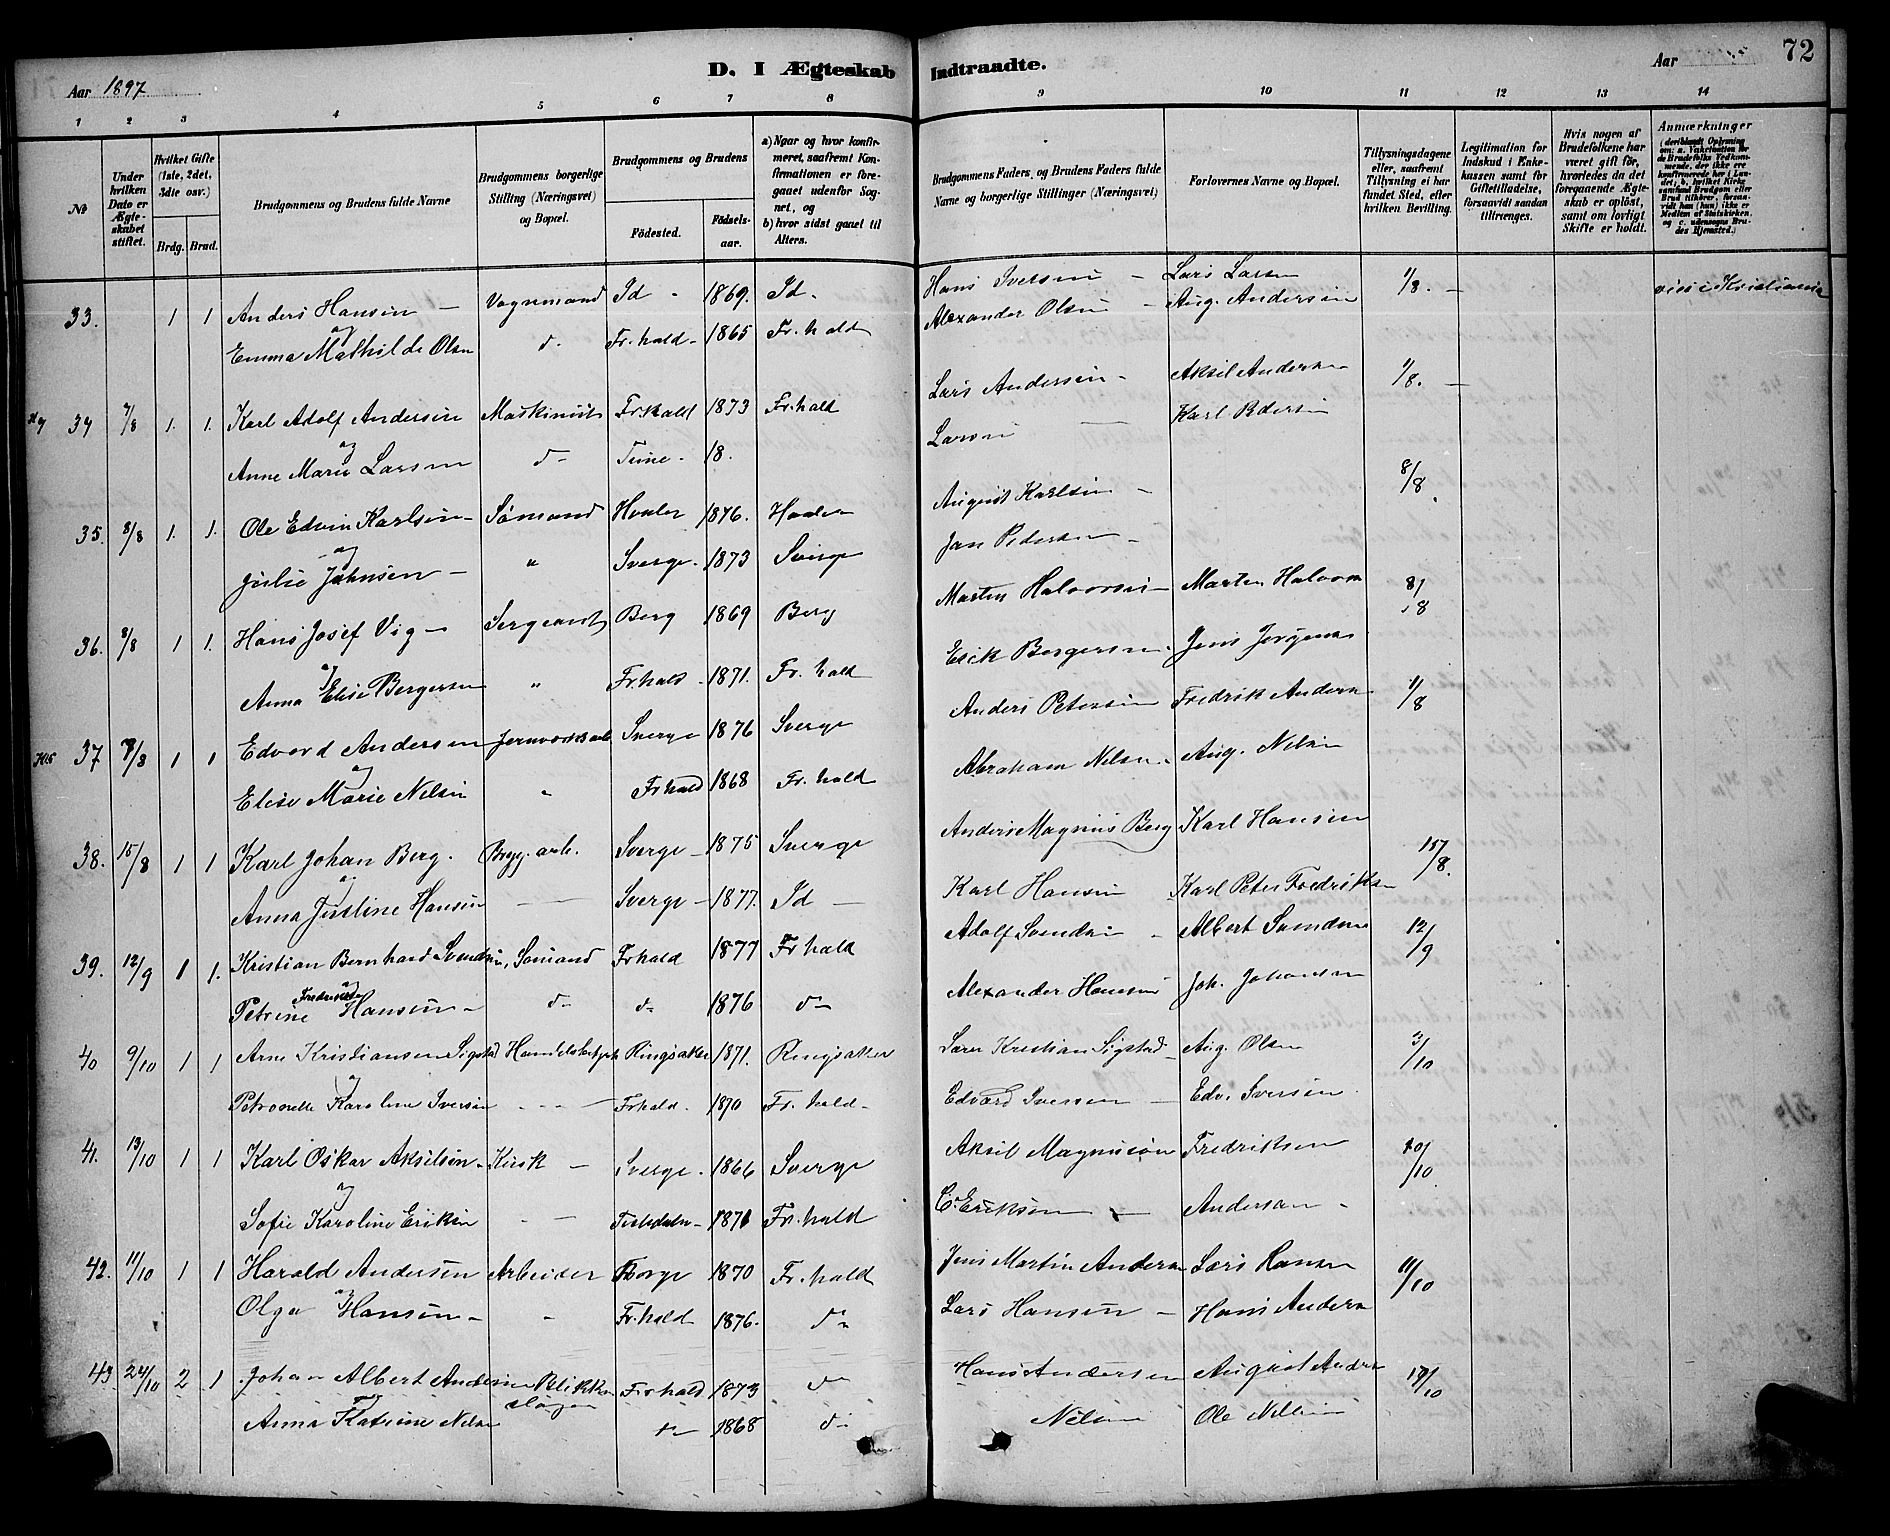 Aar 1897.
D. I Ægteskab Indtraadte.
Aar
72
1 2 3 4 5 6 7 8 9 10 11 12 13 14
№
Under hvilken Dato er Ægteskabet stiftet.
Hvilket Gifte (1ste, 2det, 3die osv.)
Brdg. Brud.
Brudgommens og Brudens fulde Navne
Brudgommens borgerlige Stilling (Næringsvei) og Bopæl.
Brudgommens og Brudens
Födested.
Födselsaar.
a) Naar og hvor konfirmeret, saafremt Konfirmationen er foregaaet udenfor Sognet, og
b) hvor sidst gaaet til Alters.
Brudgommens Faders, og Brudens Faders fulde Navne og borgerlige Stillinger (Næringsvei)
Forlovernes Navne og Bopæl.
Tillysningsdagene eller, saafremt Tillysning ei har fundet Sted, efter hvilken Bevilling.
Legitimation for Indskud i Enkekassen samt for Giftetilladelse, forsaavidt saadan tiltrænges.
Hvis nogen af Brudefolkene har været gift för, hvorledes da det foregaaende Ægteskab er oplöst, samt om lovligt Skifte er holdt.
Anmærkninger
33. 1 1 Anders Hansen Vognmand Id 1869. Id. Hans Iversen Lars Larsen 1/8. viet i Kristiania
og
Emma Mathilde Olsen d- Fr.hald 1865 Fr.hald Alexander Olsen Aug. Andersen
34 7/8 1. 1. Karl Adolf Andersen Maskinist Fr.hald 1873 Fr.hald Lars Andersen Aksel Andersen 1/8.
og
Anne Marie Larsen d- Tune 18. Larsen Karl Pedersen
35. 8/8 1. 1. Ole Edvin Karlsen Sömand Hvaler 1876. Hvaler August Karlsen 8/8
og
Julie Johnsen " Sverge 1873 Sverge Jan Pedersen
36. 8/8 1 1. Hans Josef Vig Sergeant Berg 1869 Berg Marten Halvorsen Marten Halvorsen 8/8
og
Anna Elise Bergersen " Fr.hald 1871. Fr.hald Erik Bergersen Jens Jorgensen
37 8/8 1 1 Edvard Andersen Sverge 1876 Sverge Anders Petersen Fredrik Andersen 1/8
og
Elise Marie Nelsen " Fr.hald 1868 Fr.hald Abraham Nelsen Aug. Nelsen
38. 15/8 1 1 Karl Johan Berg. Bryg.arb. Sverge 1875 Sverge Anders Magnus Berg Karl Hansen 15/8.
og
Anna Justine Hansen Sverge 1877. Id Karl Hansen Karl Peter Fredriksen
39. 12/9 1 1. Kristian Bernhard Svendsen, Sömand Fr.hald 1877 Fr.hald Adolf Svendsen Albert Svendsen 12/9
og
Petrine Fredrikke Hansen d- d- 1876 d- Alexander Hansen Joh. Johansen
40 9/10 1 1 Arne Kristiansen Sigstad Handelsbetjent Ringsaker 1871. Ringsaker Kristian Sigstad Aug. Olsen 3/10
og
Petronelle Karoline Iversen Fr.hald. 1870 Fr.hald Edvard Iversen Edv. Iversen
41. 13/10 1 1 Karl Oskar Akselsen Kusk Sverge 1866 Sverge Aksel Magnuson Fredriksen 10/10
og
Sofie Karoline Eriksen Tistedalen 1871 Fr.hald C. Eriksen Andersen
42. 11/10 1 1 Harald Andersen Arbeider Borge 1870 Fr.hald Jens Martin Andersen Lars Hansen 11/10
og
Olga Hansen " Fr.hald 1876. d- Lars Hansen Hans Andersen
43. 24/10 2 1 Johan Albert Andersen Blikkenslager Fr.hald 1873 d- Hans Andersen August Andersen 17/10
Anna Katrine Nelsen d- 1868 d- Nelsen Ole Nilsen